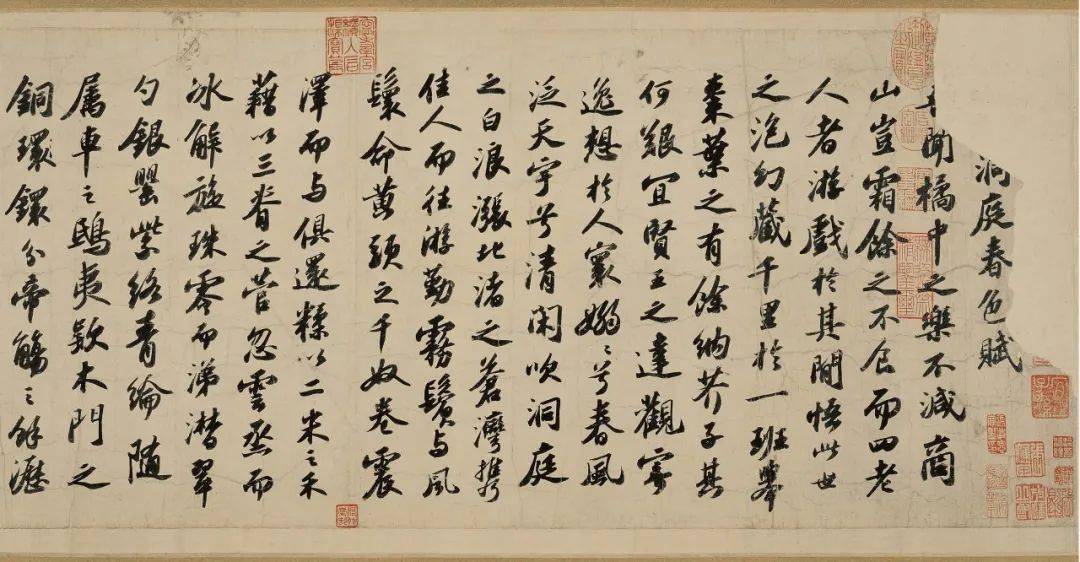 洞庭春色賦
聞橘中之樂不減商
山豈霜餘之不食而四老
人者游戲於其間悟此世
之泡幻藏千里於一班舉
棗葉之有餘納芥子其
何艱宜賢王之達觀寄
逸想於人寰嫋〻兮春風
泛天宇兮清閑吹洞庭
之白浪漲北渚之蒼灣攜
佳人而往游勤霧鬢与風
鬟命黃頭之千奴卷震
澤而与俱還糅以二米之禾
藉以三脊之菅忽雲烝而
冰解旋珠零而涕潸翠
勺銀罌紫絡青綸隨
屬車之鴟夷款木門之
銅環鐶分帝觴之餘瀝